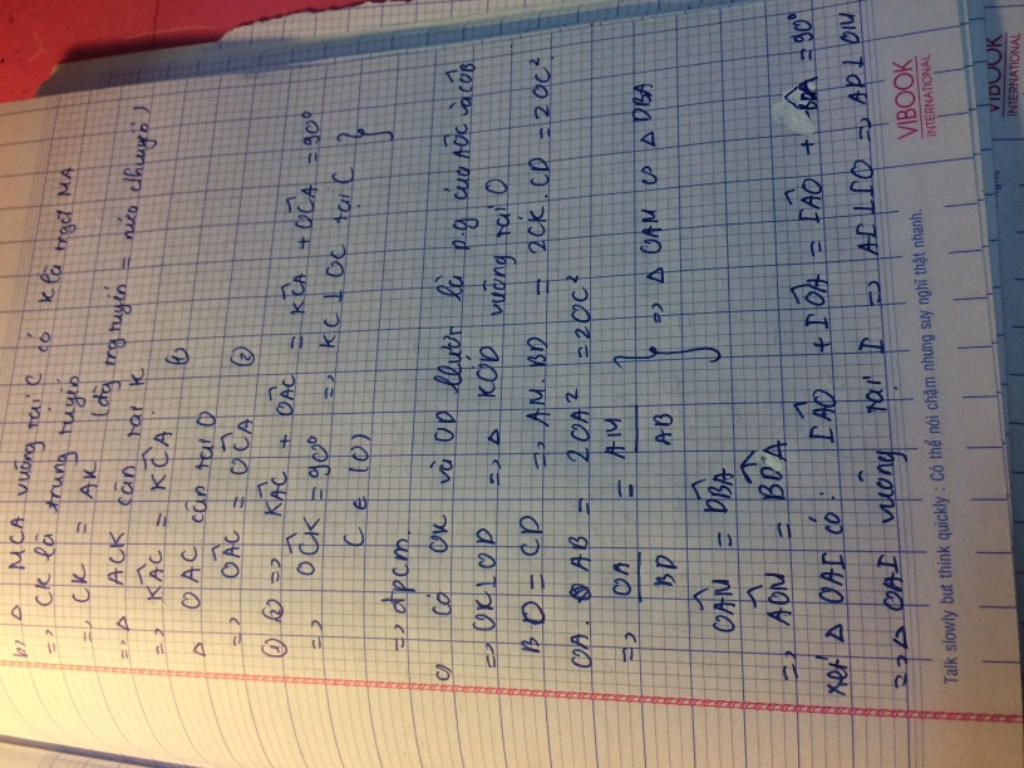 b) Δ MCA vuông tại C có K là trgđ MA
=> CK là trung tuyến
=> CK = AK (đg trg tuyến = nửa chuyề)
=> Δ ACK cân tại K
=> KÂC = KĈA (1)
Δ OAC cân tại O
=> OÂC = OĈA (2)
(1) (2) => KÂC + OÂC = KĈA + OĈA = 90°
=> OĈK = 90° => KC ⊥ OC tại C }
C ∈ (O)
=> đpcm.
c) Có OK và OD lần lượt là p.g của AÔC và CÔB
=> OK ⊥ OD => Δ KOD vuông tại O
BD = CD => AM. BD = 2CK. CD = 2OC²
OA. AB = 2OA² = 2OC²
=> OA/BD = AM/AB } => Δ OAM ∽ Δ DBA
OÂM = DB̂A
=> AÔM = BD̂A
Xét Δ OAI có: IÂO + IÔA = IÂO + BD̂A = 90°
=> Δ OAI vuông tại I => AI ⊥ IO => AD ⊥ OM
VIBOOK
INTERNATIONAL
Talk slowly but think quickly : Có thể nói chậm nhưng suy nghĩ thật nhanh.
VIBOOK
INTERNATIONAL